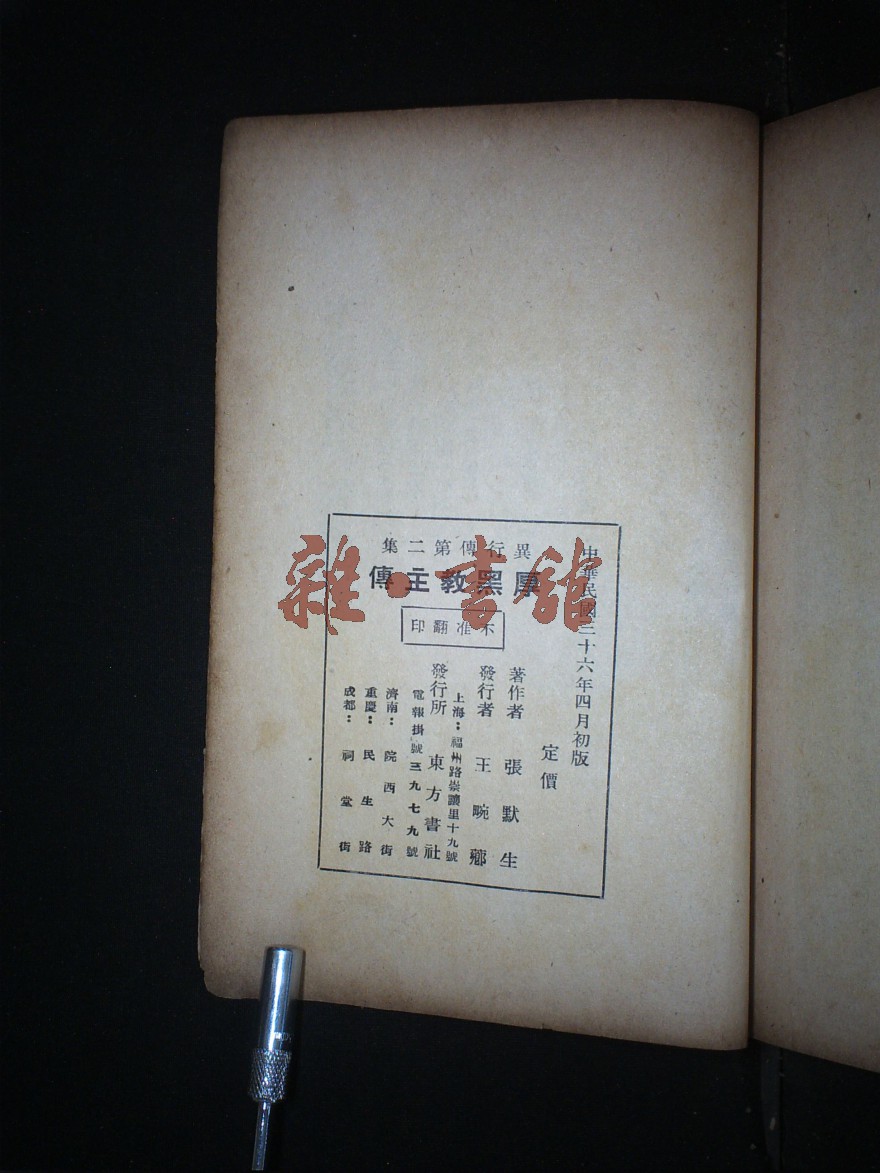 異行傳第二集
厚黑教主傳
不准翻印
中華民國三十六年四月初版
定價
著作者 張默生
發行者 王畹薌
發行所 東方書社
上海：福州路崇讓里十九號
電報掛號三九七九號
濟南：院西大街
重慶：民生路
成都：祠堂街
雜·書館